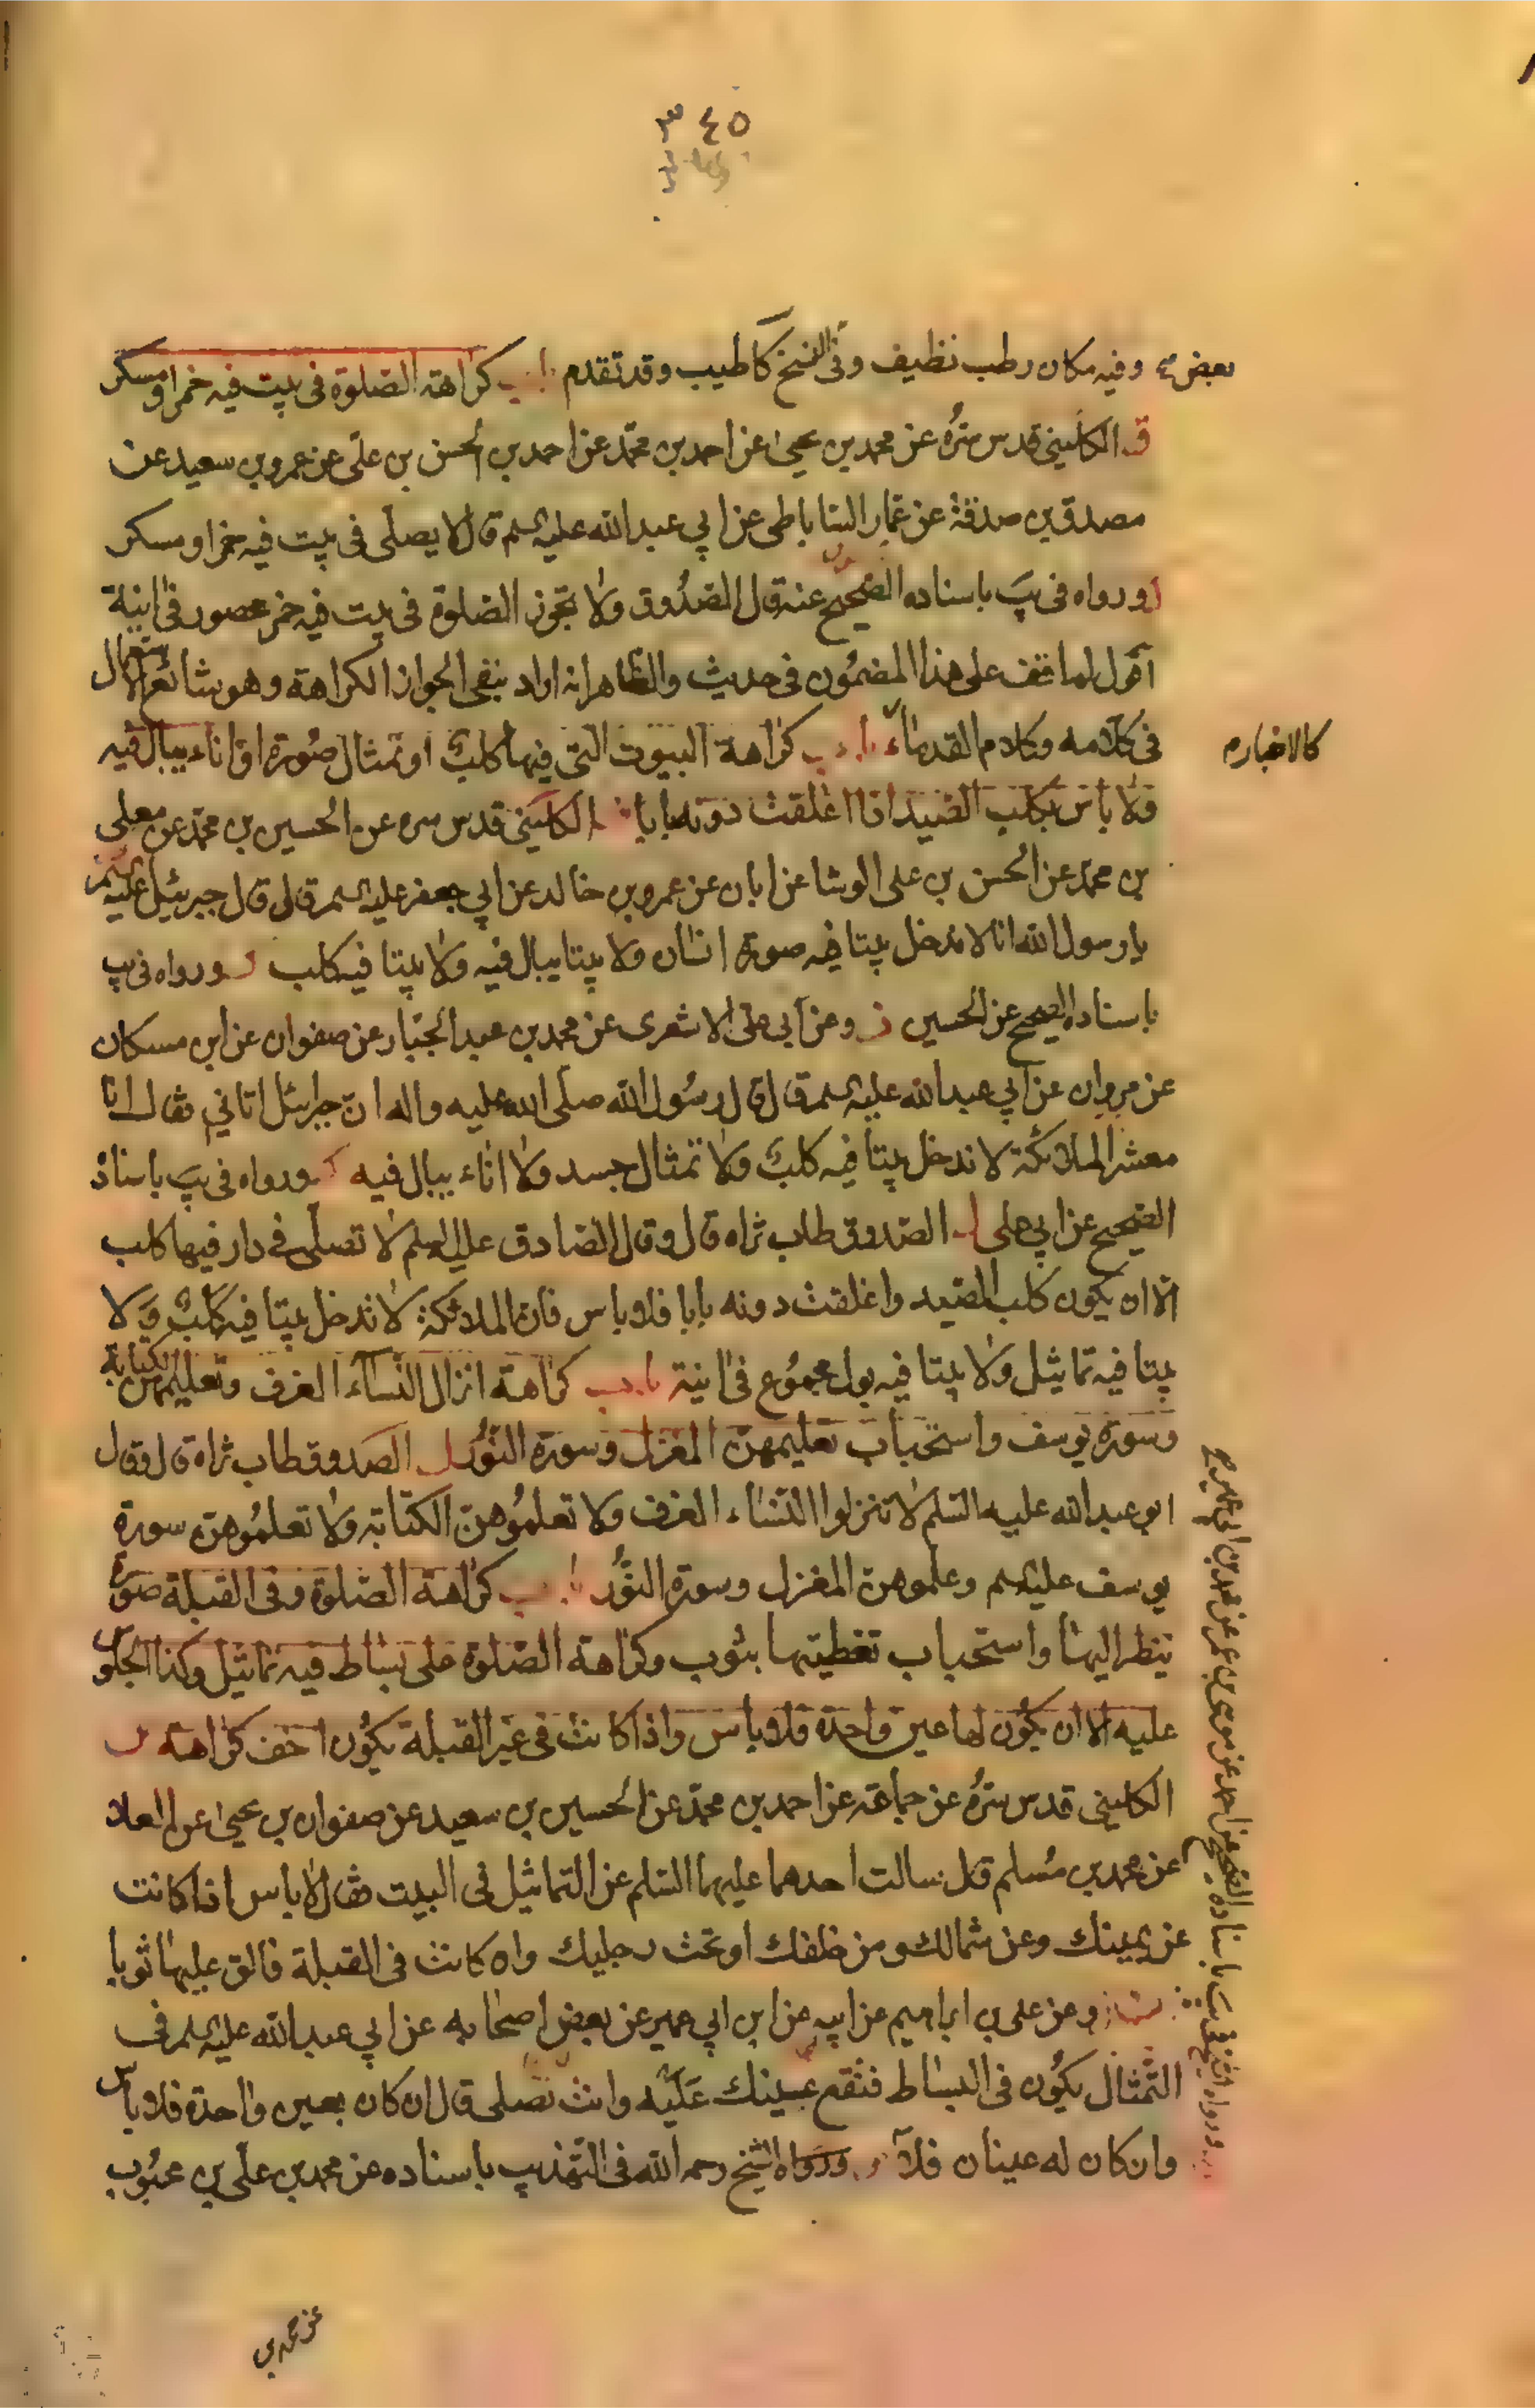 ٣٤٥
بعض وفيه مكان رطب نظيف وفى النسخ كاطيب وقد تقدم باب كراهة الصلوة فى بيت فيه خمر او مسكر
ق الكلينى قدس سره عن محمد بن يحيى عن احمد بن محمد عن احمد بن الحسن بن على عن عمرو بن سعيد عن
مصدق بن صدقة عن عمار الساباطى عن ابي عبد الله عليه السلم قال لا يصلى فى بيت فيه خمر او مسكر
ورواه فى يب باسناده الصحيح عنه قال الصدوق ولا تجوز الصلوة فى بيت فيه خمر محصور فى انية
اقول لم اقف على هذا المضمون فى حديث والظاهر انه اراد بنفى الجواز الكراهة وهو شائع الاستعمال
فى كلامه وكلام القدماء باب كراهة البيوت التى فيها كلب او تمثال صورة او اناء يبال فيه
كالاخبار
ولا باس بكلب الصيد اذا اغلقت دونه بابا الكلينى قدس سره عن الحسين بن محمد عن معلى
بن محمد عن الحسن بن على الوشا عن ابان عن عمرو بن خالد عن ابي جعفر عليه السلم قال قال جبرئيل عليه السلم
يا رسول الله انا لا ندخل بيتا فيه صورة انسان ولا بيتا يبال فيه ولا بيتا فيه كلب ورواه فى يب
باسناده الصحيح عن الحسين وعن ابى على الاشعرى عن محمد بن عبد الجبار عن صفوان عن ابن مسكان
عن مروان عن ابي عبد الله عليه السلم قال قال رسول الله صلى الله عليه واله ان جبرائيل اتاني فقال انا
معشر الملائكة لا ندخل بيتا فيه كلب ولا تمثال جسد ولا اناء يبال فيه ورواه فى يب باسناده
الصحيح عن ابي على الصدوق طاب ثراه قال وقال الصادق عليه السلم لا تصلى فى دار فيها كلب
الا ان يكون كلب الصيد واغلقت دونه بابا فلا باس فان الملائكة لا تدخل بيتا فيه كلب ولا
بيتا فيه تماثيل ولا بيتا فيه بول مجموع فى انية باب كراهة انزال النساء الغرف وتعليمهن الكتابة
وسورة يوسف واستحباب تعليمهن المغزل وسورة النور الصدوق طاب ثراه قال وقال
ابو عبد الله عليه السلم لا تنزلوا النساء الغرف ولا تعلموهن الكتابة ولا تعلموهن سورة
يوسف عليه السلم وعلموهن المغزل وسورة النور باب كراهة الصلوة وفى القبلة صورة
ينظر اليها واستحباب تغطيتها بثوب وكراهة الصلوة على بساط فيه تماثيل وكذا الجلوس
عليه الا ان يكون لها عين واحدة فلا باس واذا كانت فى غير القبلة يكون اخف كراهة
الكلينى قدس سره عن جماعة عن احمد بن محمد عن الحسين بن سعيد عن صفوان بن يحيى عن العلا
عن محمد بن مسلم قال سالت احدهما عليهما السلم عن التماثيل فى البيت فقال لا باس اذا كانت
عن يمينك وعن شمالك ومن خلفك او تحت رجليك وان كانت فى القبلة فالق عليها ثوبا
وعن على بن ابراهيم عن ابيه عن ابن ابي عمير عن بعض اصحابه عن ابي عبد الله عليه السلم فى
التمثال يكون فى البساط فتقع عينك عليه وانت تصلى قال ان كان بعين واحدة فلا باس
وان كان له عينان فلا ورواه الشيخ رحمه الله فى التهذيب باسناده عن محمد بن على بن محبوب
عن محمد بن